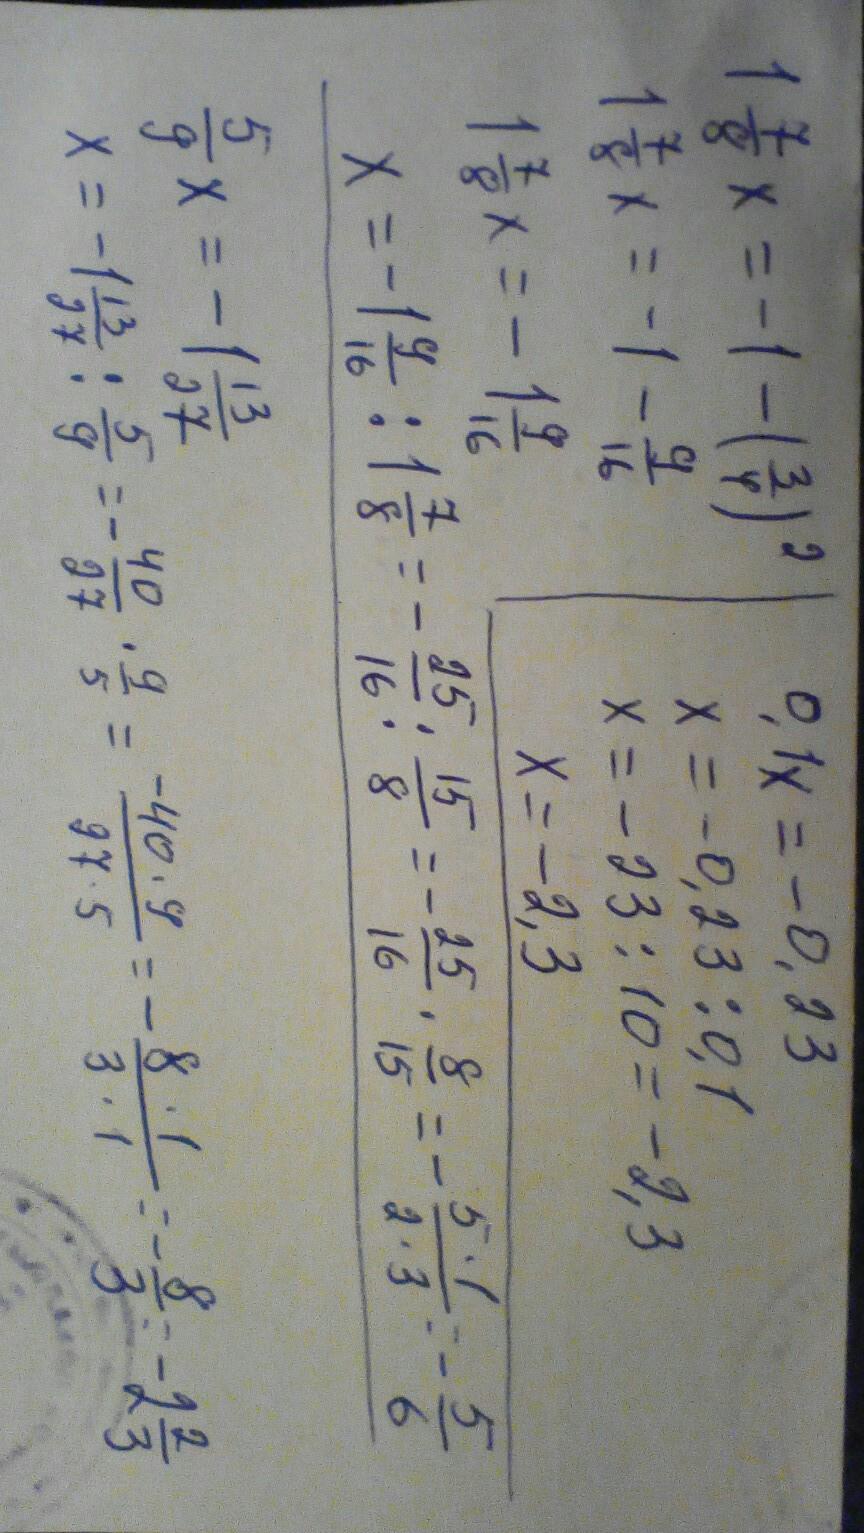 1 7/8 x = -1 - (3/4)²
1 7/8 x = -1 - 9/16
1 7/8 x = - 1 9/16
x = -1 9/16 : 1 7/8 = - 25/16 : 15/8 = - 25/16 · 8/15 = - 5·1/2·3 = - 5/6
0,1x = -0,23
x = -0,23 : 0,1
x = -23 : 10 = -2,3
x = -2,3
5/9 x = - 1 13/27
x = -1 13/27 : 5/9 = - 40/27 · 9/5 = -40·9/27·5 = - 8·1/3·1 = - 8/3 = -2 2/3